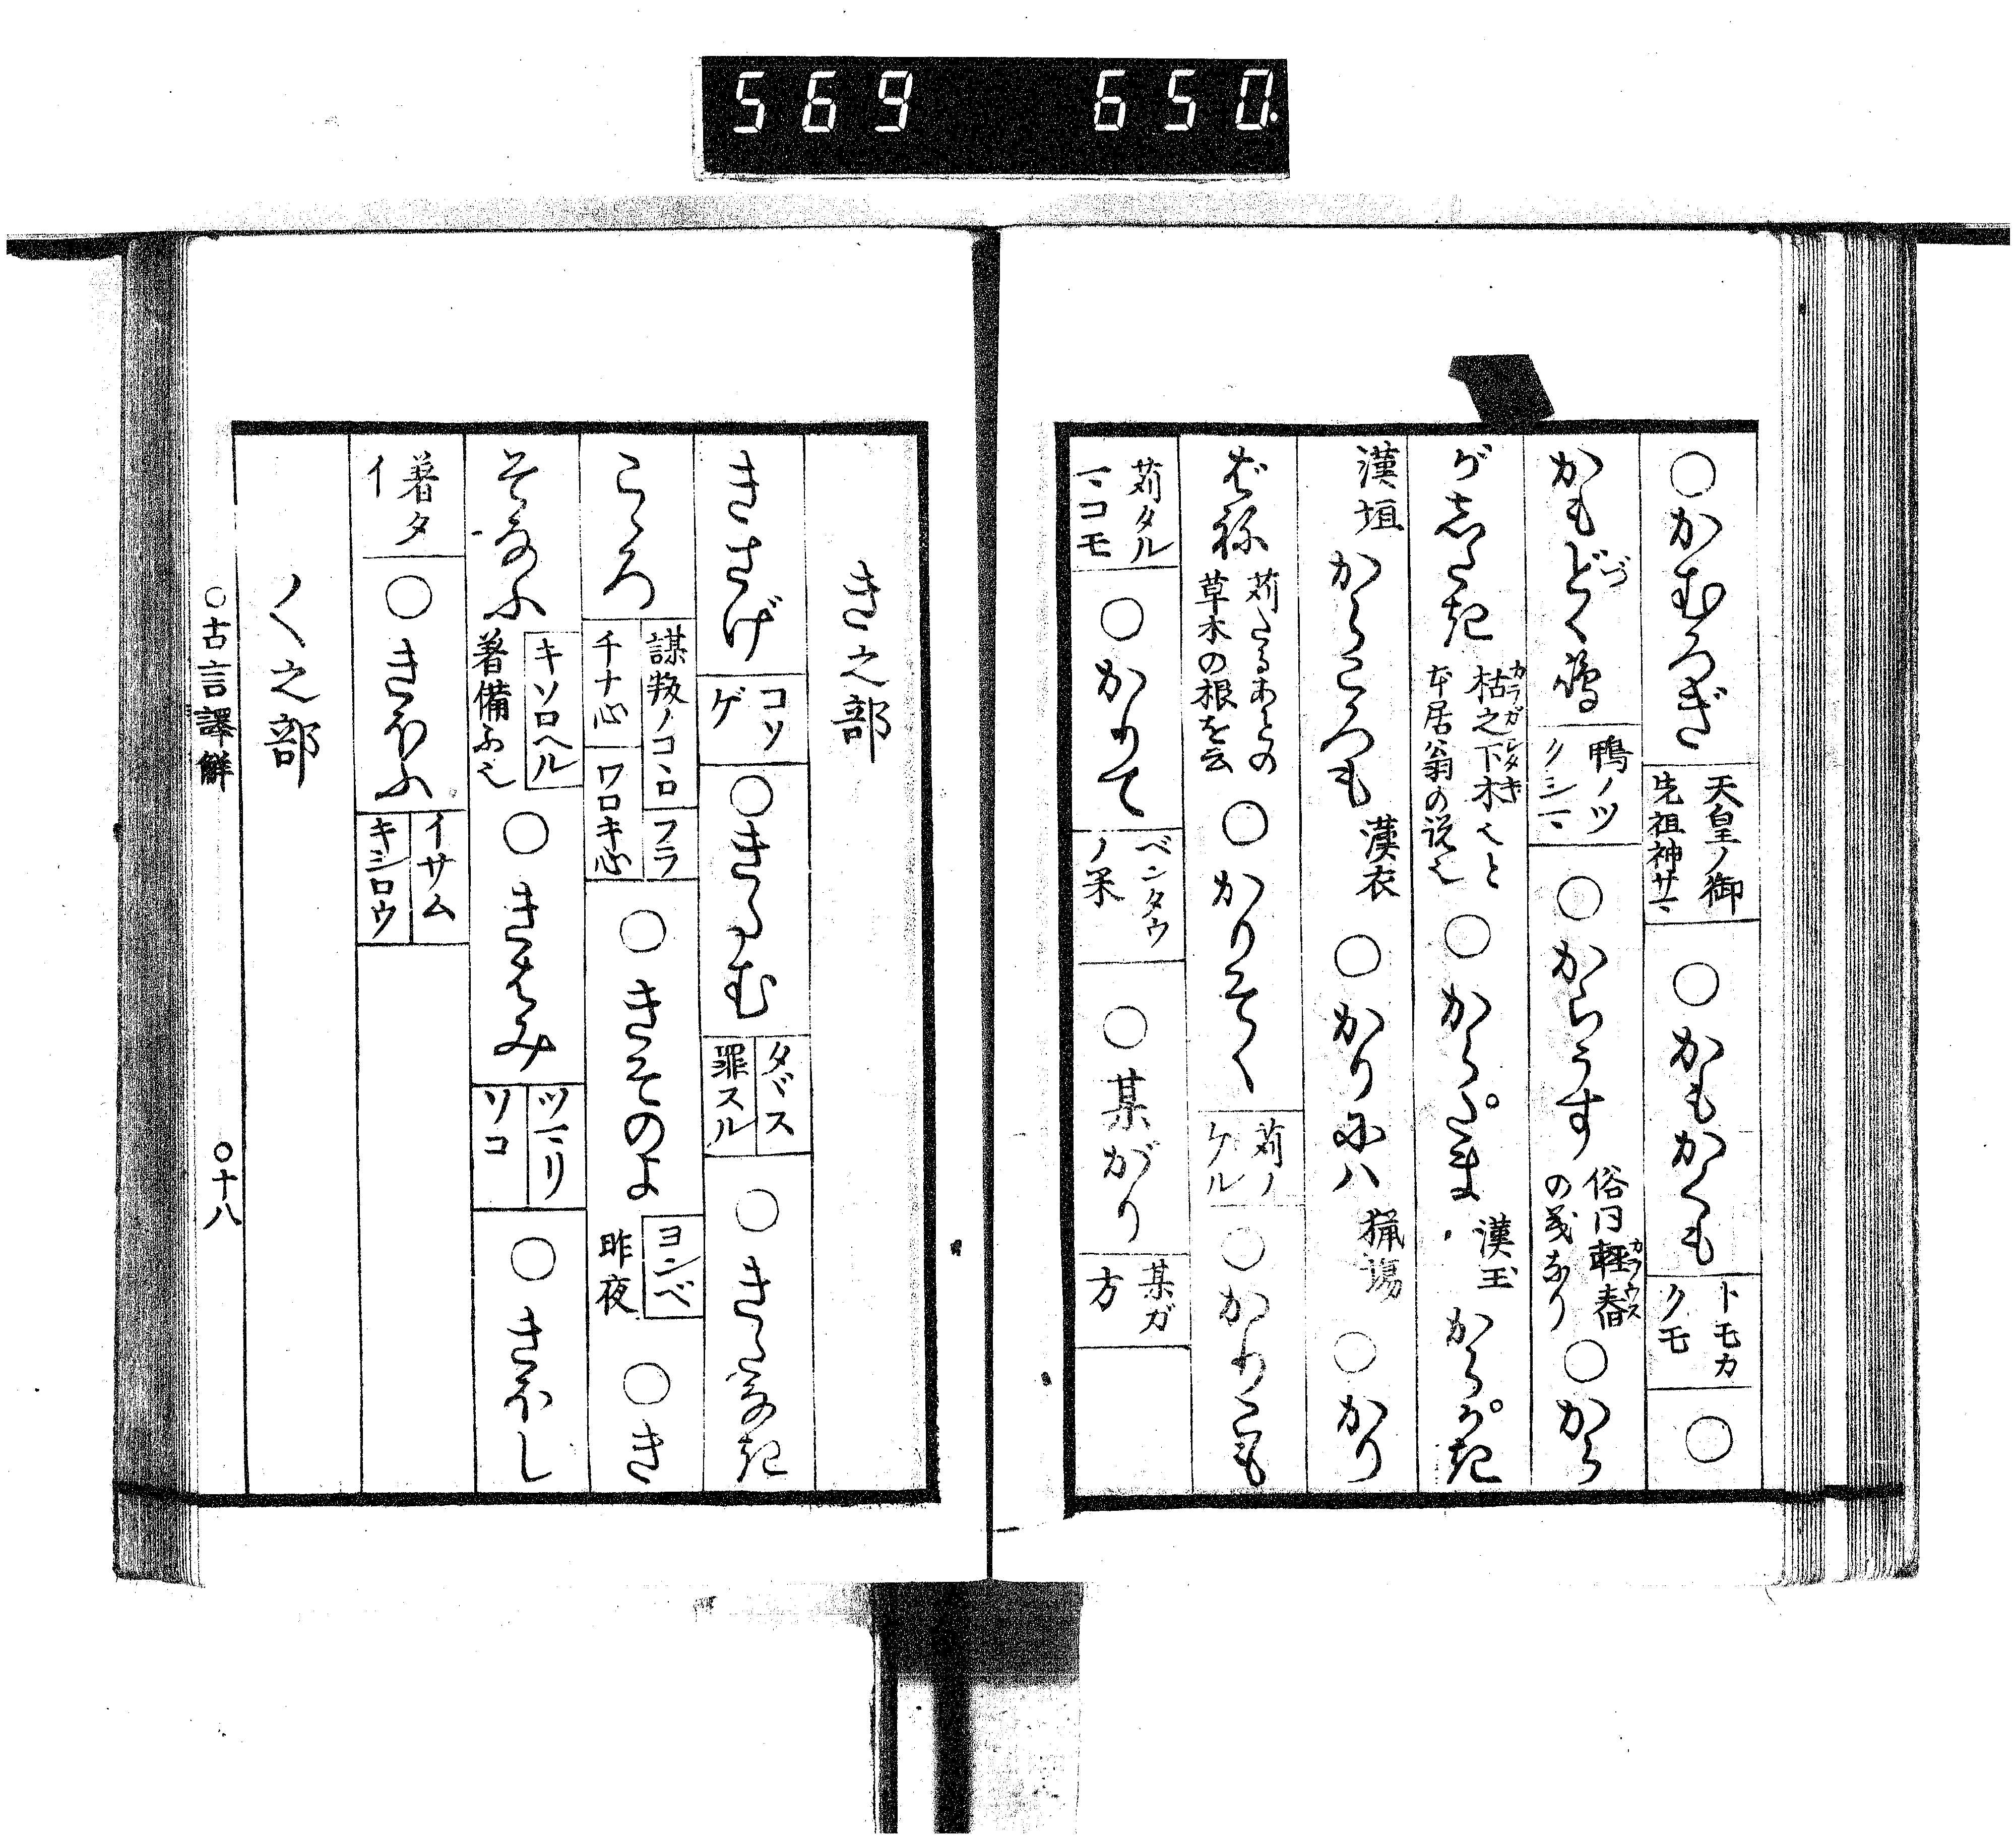 569 650.
○かむろぎ 天皇ノ御先祖神サマ ○かもかくも トモカクモ ○
かもどく嶋 づゞ 鴨ノツクシマ ○からうす 俗同軽舂カラウスの義なり ○から
がしたき 枯之下木カラガシタキ也と本居翁の説也 ○からたま 漢玉 からがき
漢垣 からころも 漢衣 ○かりには 猟場 ○かり
ばね 苅たるあとの草木の根を云 ○かりそく 苅ノケル ○かりこも
苅タルマコモ ○かりて ベンタウノ米 ○某がり 某ガ方
き之部
きさげ コソゲ ○きたむ タヾス 罪スル ○きたなき
こゝろ 謀叛ノコヽロ フラチナ心 ワロキ心 ○きそのよ ヨンベ 昨夜 ○き
そなふ キソロヘル 着備ふ也 ○きはみ ツマリ ソコ ○きほし
着タイ ○きほふ イサム キシロウ
く之部
○古言譯解 ○十八